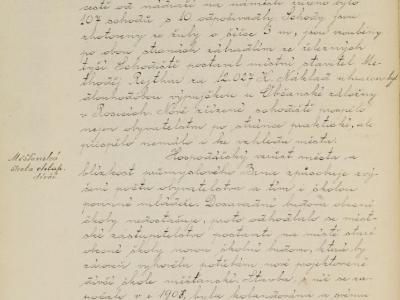 cestě od nádraží na náměstí zřízeno bylo
107 schodů, s 10 odpočívadly. Schody jsou
zhotoveny ze žuly o šířce 3 m, jsou vroubeny
po obou stranách zábradlím ze železných
tyčí. Schodiště postavil místní stavitel Me-
thoděj Rejthar za 12.027 K. Náklad uhrazen byl
dlouhodobou výpůjčkou u Občanské záložny
v Rosicích. Nově zřízené schodiště prospělo
nejen obyvatelstvu po stránce praktické, ale
přispělo nemálo i ke vzhledu města.
Měšťanská
škola chlap.
Hospodářský vzrůst města a
blízkost průmyslového Brna způsobuje zvý-
šení počtu obyvatelstva a tím i školou
povinné mládeže. Dosavadní budova obecné
školy nedostačuje, proto odhodlalo se měst-
ské zastupitelstvo postavit na místě staré
obecné školy novou školní budovu, která by
zároveň vyhověla potřebám nově projektované
dívčí škole měšťanské. Stavba, s níž se za-
počalo v r. 1908, byla kolaudována a